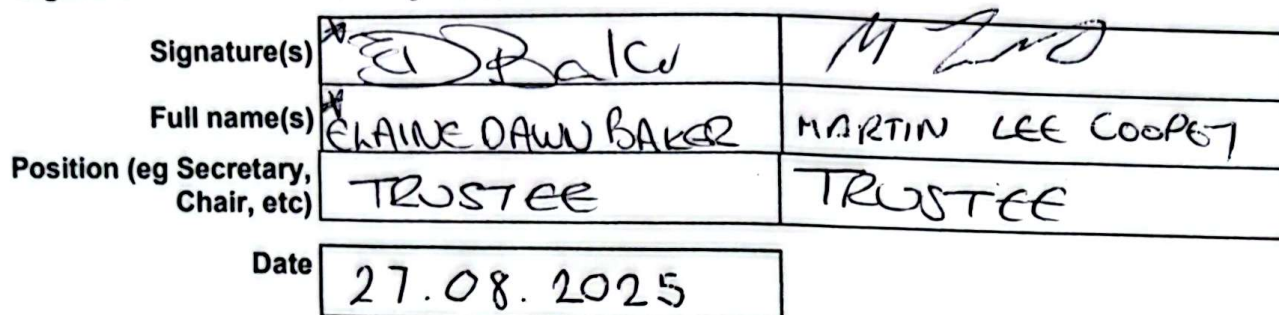 Signature(s) ED Baker M
Full name(s) ELAINE DAWN BAKER MARTIN LEE COOPER
Position (eg Secretary,
Chair, etc) TRUSTEE TRUSTEE
Date 27.08.2025